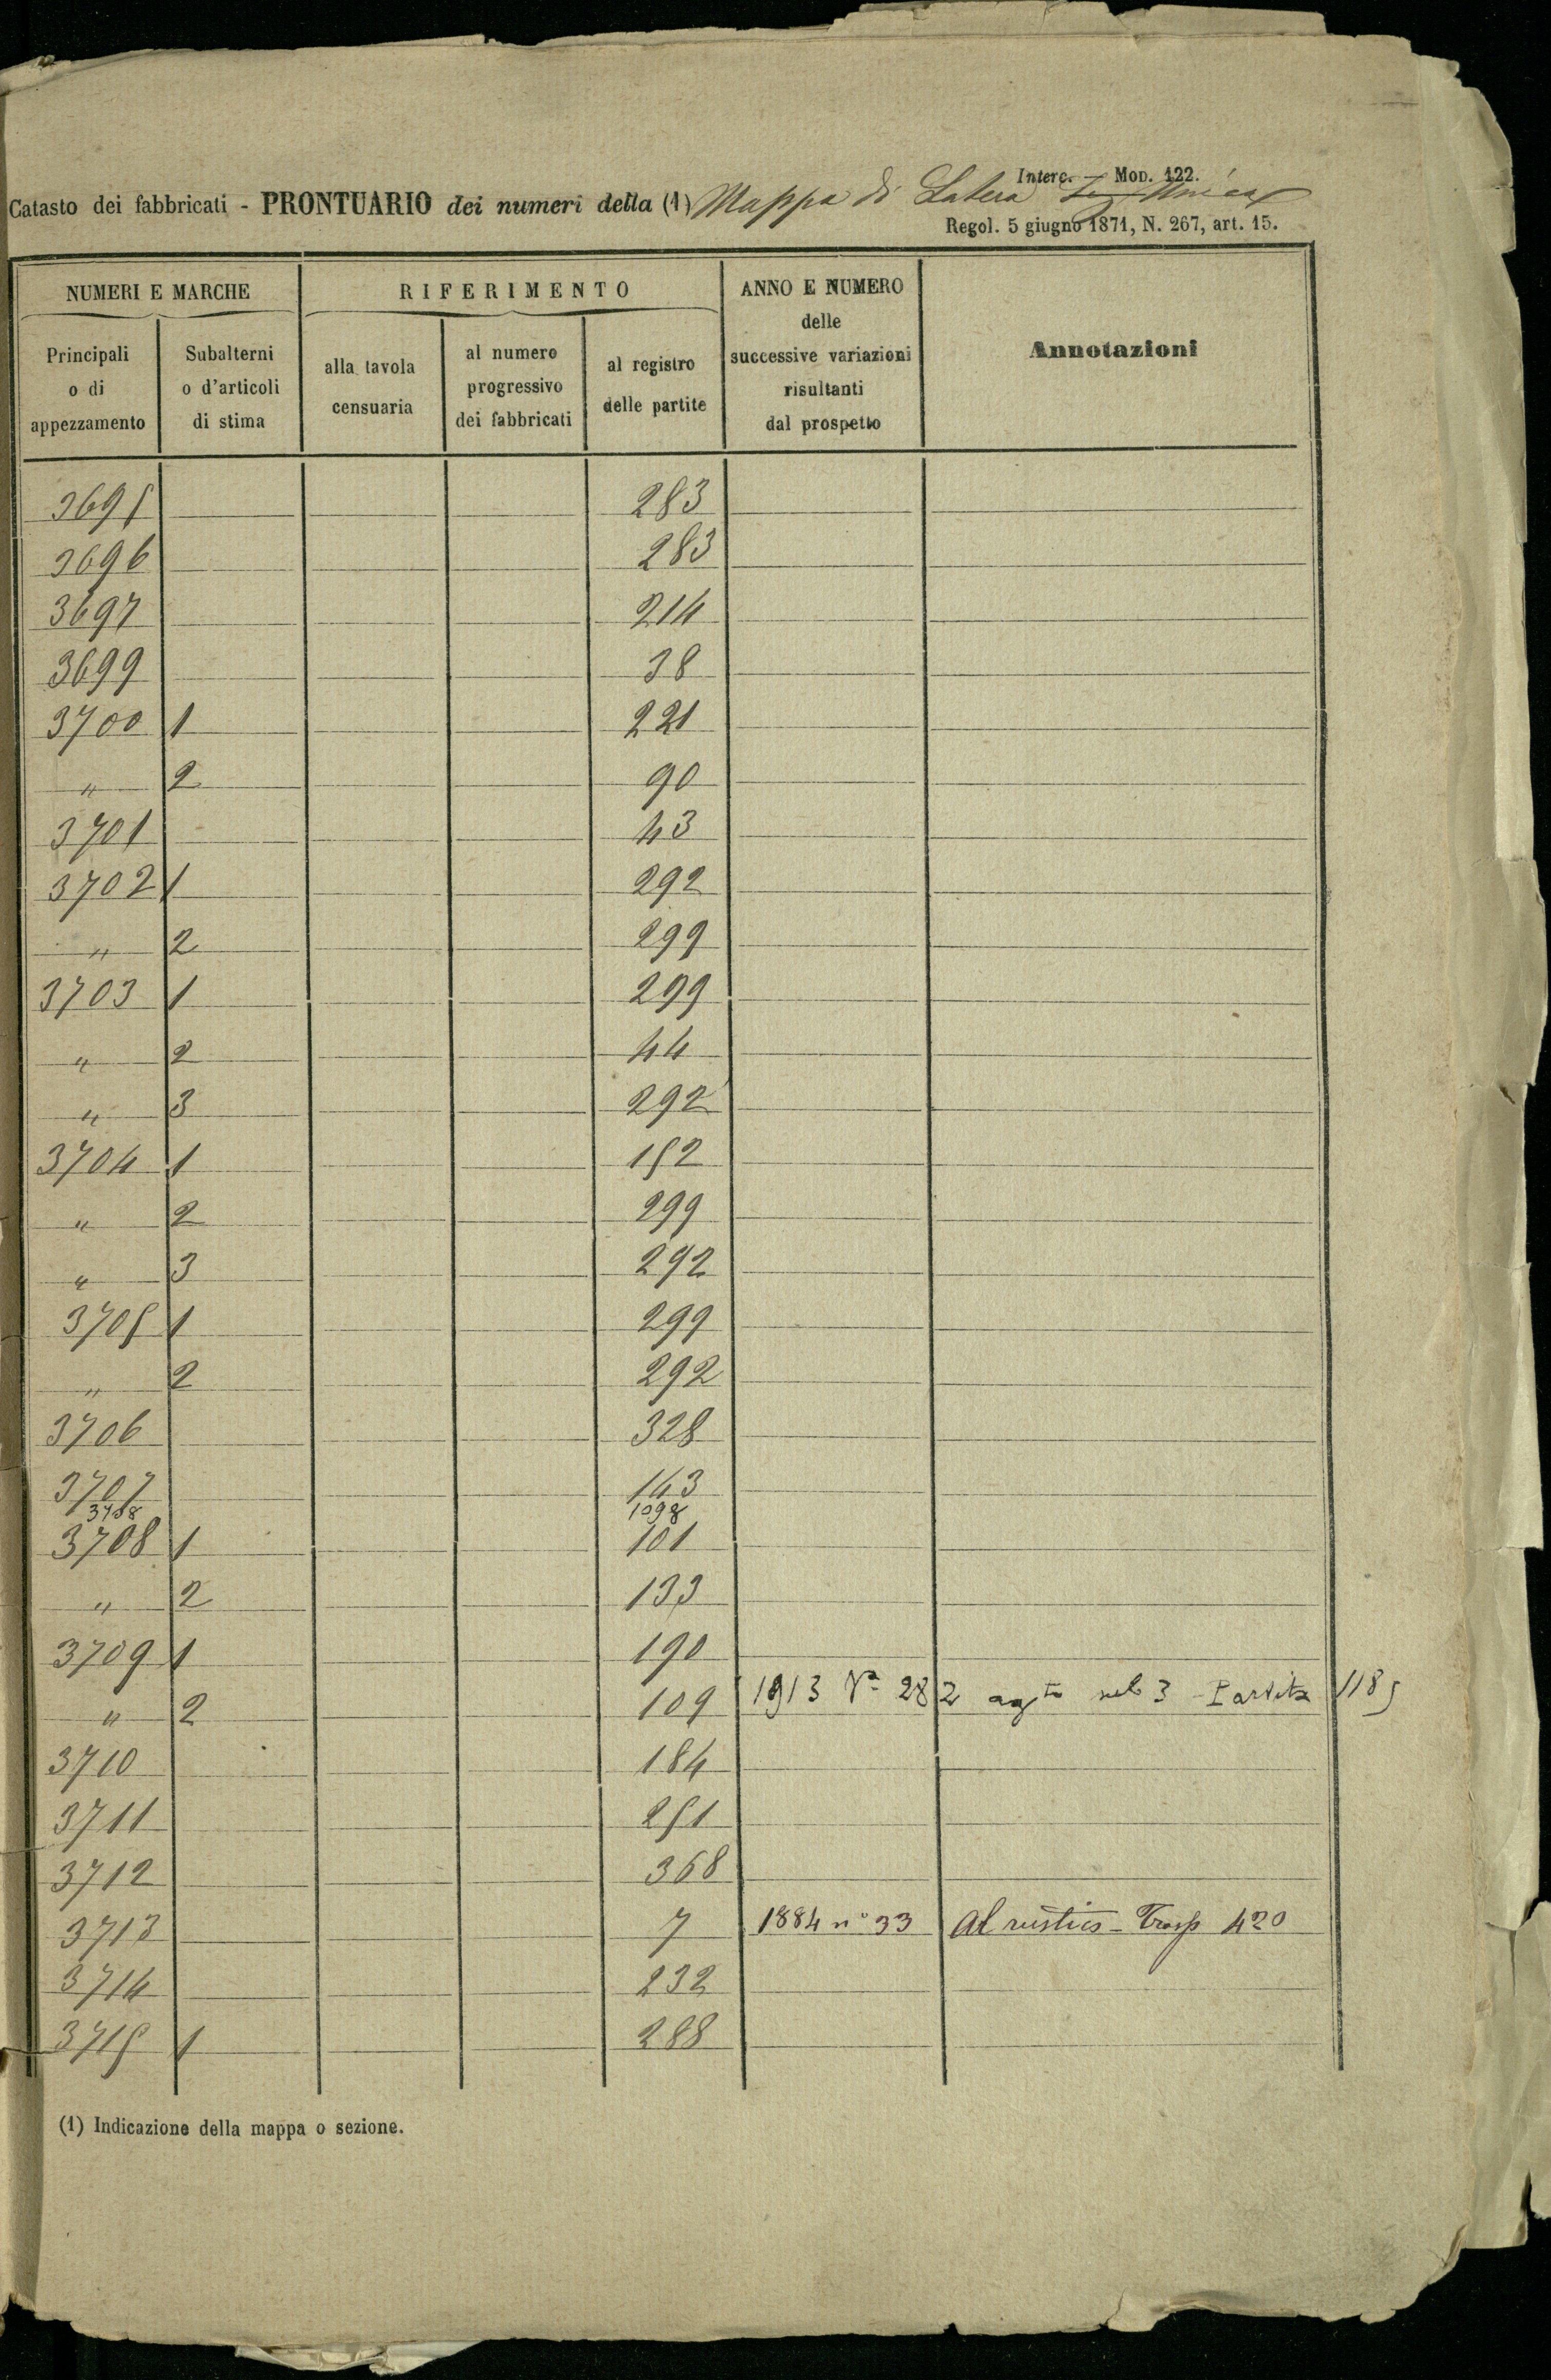 Interc. — Mod. 122.
Catasto dei fabbricati - PRONTUARIO dei numeri della (1) Mappa di Latera Sez Unica
Regol. 5 giugno 1871, N. 267, art. 15.
NUMERI E MARCHE RIFERIMENTO ANNO E NUMERO delle successive variazioni risultanti dal prospetto Annotazioni
Principali o di appezzamento Subalterni o d'articoli di stima alla tavola censuaria al numero progressivo dei fabbricati al registro delle partite
3695 283
3696 283
3697 214
3699 38
3700 1 221
" 2 90
3701 43
3702 1 292
" 2 299
3703 1 299
" 2 44
" 3 292
3704 1 152
" 2 299
" 3 292
3705 1 299
" 2 292
3706 328
3707 143
3708 1098
3708 1 101
" 2 133
3709 1 190
" 2 109 1913 Va 282 agta sub 3 Partita 1185
3710 184
3711 251
3712 368
3713 7 1884 n° 33 Al rustico - Trasp 420
3714 232
3715 1 288
(1) Indicazione della mappa o sezione.